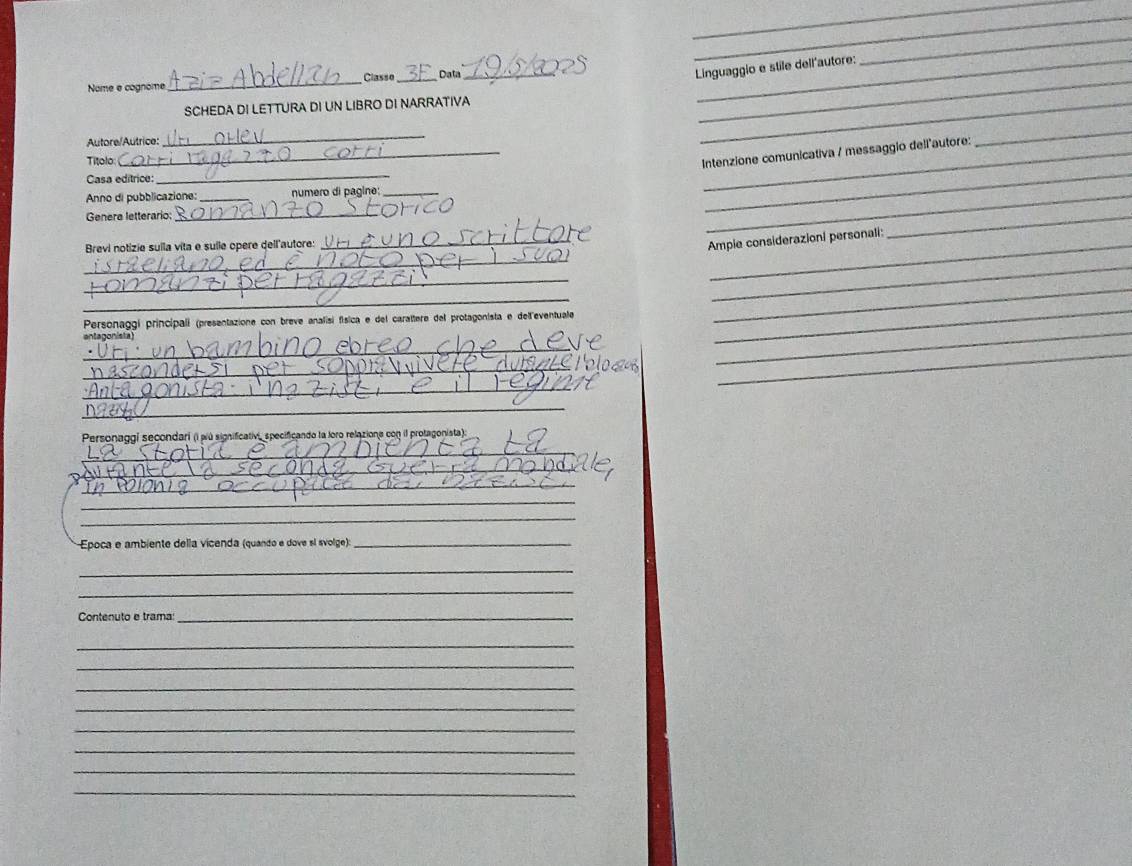 Nome e cognome Aziz Abdellah Classe 3F Data 19/5/2025
SCHEDA DI LETTURA DI UN LIBRO DI NARRATIVA
Autore/Autrice: Uri orlev
Titolo: Corri ragazzo corri
Casa editrice:
Anno di pubblicazione: numero di pagine:
Genere letterario: Romanzo Storico
Brevi notizie sulla vita e sulle opere dell'autore: Uri è uno scrittore
israeliano, ed è noto per i suoi
romanzi per ragazzi.
Personaggi principali (presentazione con breve analisi fisica e del carattere del protagonista e dell'eventuale
antagonista)
·Uri: un bambino ebreo che deve
nascondersi per soppravvivere durante
·Antagonista: i nazisti e il regime
Personaggi secondari (i più significativi, specificando la loro relazione con il protagonista):
La storia è ambienta ta
durante la seconda Guerra mondiale,
in Polonia occupata dai nazisti
Epoca e ambiente della vicenda (quando e dove si svolge):
Contenuto e trama:
Linguaggio e stile dell'autore:
Intenzione comunicativa / messaggio dell'autore:
Ampie considerazioni personali: